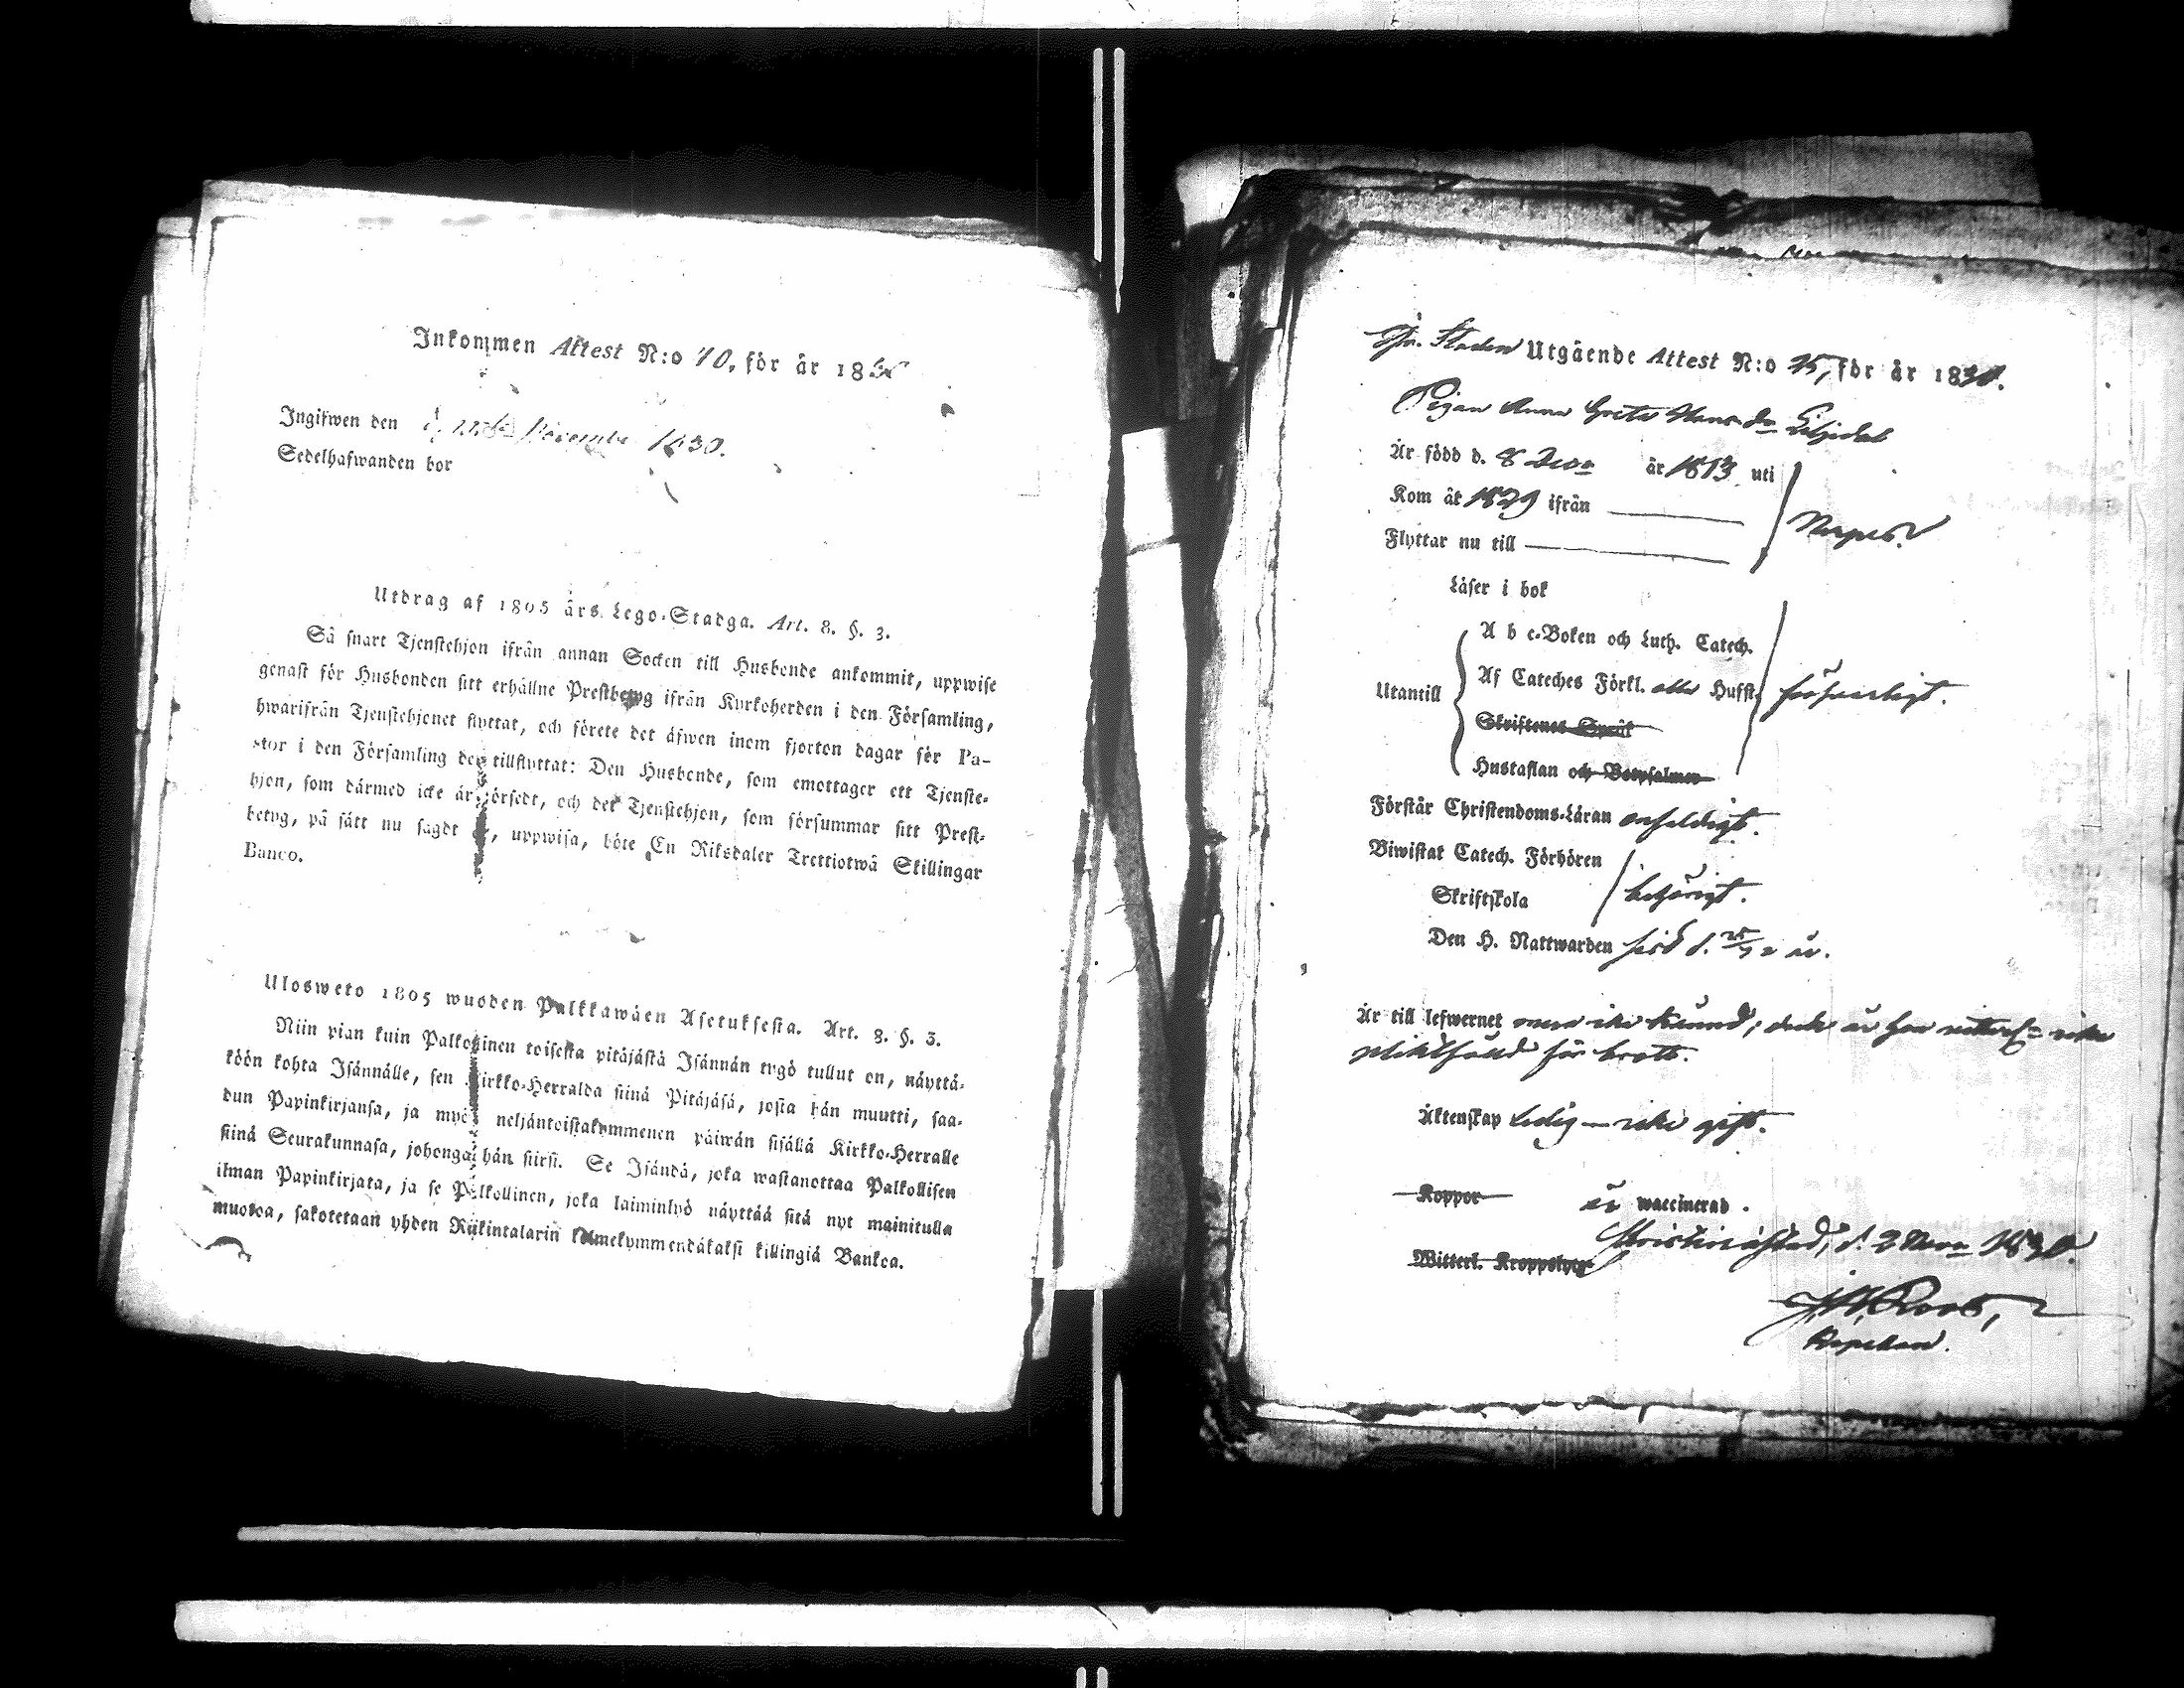 Inkommen Attest N:o 70, för år 18
Ingifwen den November 1830.
Sedelhafwanden bor
Utdrag af 1805 års Lego-Stadga. Art. 8. §. 3.
Så snart Tjenstehjon ifrån annan Socken till Husbonde ankommit, uppwise
genast för Husbonden sitt erhållne Prestbetyg ifrån Kyrkoherden i den Församling,
hwarifrån Tjenstehjonet flyttat, och förete det äfwen inom fjorton dagar för Pa-
stor i den Församling det tillflyttat: Den Husbonde, som emottager ett Tjenste-
hjon, som därmed icke är försedt, och det Tjenstehjon, som försummar sitt Prest-
betyg, på sätt nu sagdt är, uppwisa, böte En Riksdaler Trettiotwå Skillingar
Banco.
Ulosweto 1805 wuoden Palkkawäen Asetuksesta. Art. 8. §. 3.
Niin pian kuin Palkollinen toisesta pitäjästä Isännän tygö tullut on, näyttä-
köön kohta Isännälle, sen Kirkko-Herralda siinä Pitäjäsä, josta hän muutti, saa-
dun Papinkirjansa, ja myös neljäntoistakymmenen päiwän sisällä Kirkko-Herralle
siinä Seurakunnasa, johonga hän siirsi. Se Isändä, joka wastanottaa Palkollisen
ilman Papinkirjata, ja se Palkollinen, joka laiminlyö näyttää sitä nyt mainitulla
muotoa, sakotetaan yhden Riikintalarin kolmekymmendäkaksi killingiä Bankoa.
Staden Utgående Attest N:o 25, för år 1830.
Pigan Anna Greta Hans dr Liljedal
Är född d. 8 Decr år 1813 uti
Kom år 1829 ifrån
Nerpes.
Flyttar nu till
Läser i bok
A b c-Boken och Luth. Catech.
Utantill Af Cateches Förkl. eller Hufst. försvarligt.
Skriftenes Språk
Hustaflan och Botpsalmer
Förstår Christendoms-Läran enfaldigt.
Biwistat Catech. Förhören
Skriftskola behörigt.
Den H. Nattwarden sist d. är.
Är till lefwernet icke känd; icke
för brott.
Äktenskap ledig — icke gift.
Koppor är waccinerad.
Christinæstad, d. 2 Novr 1830.
Witterl. Kroppslyte
Roos,
Kapellan.